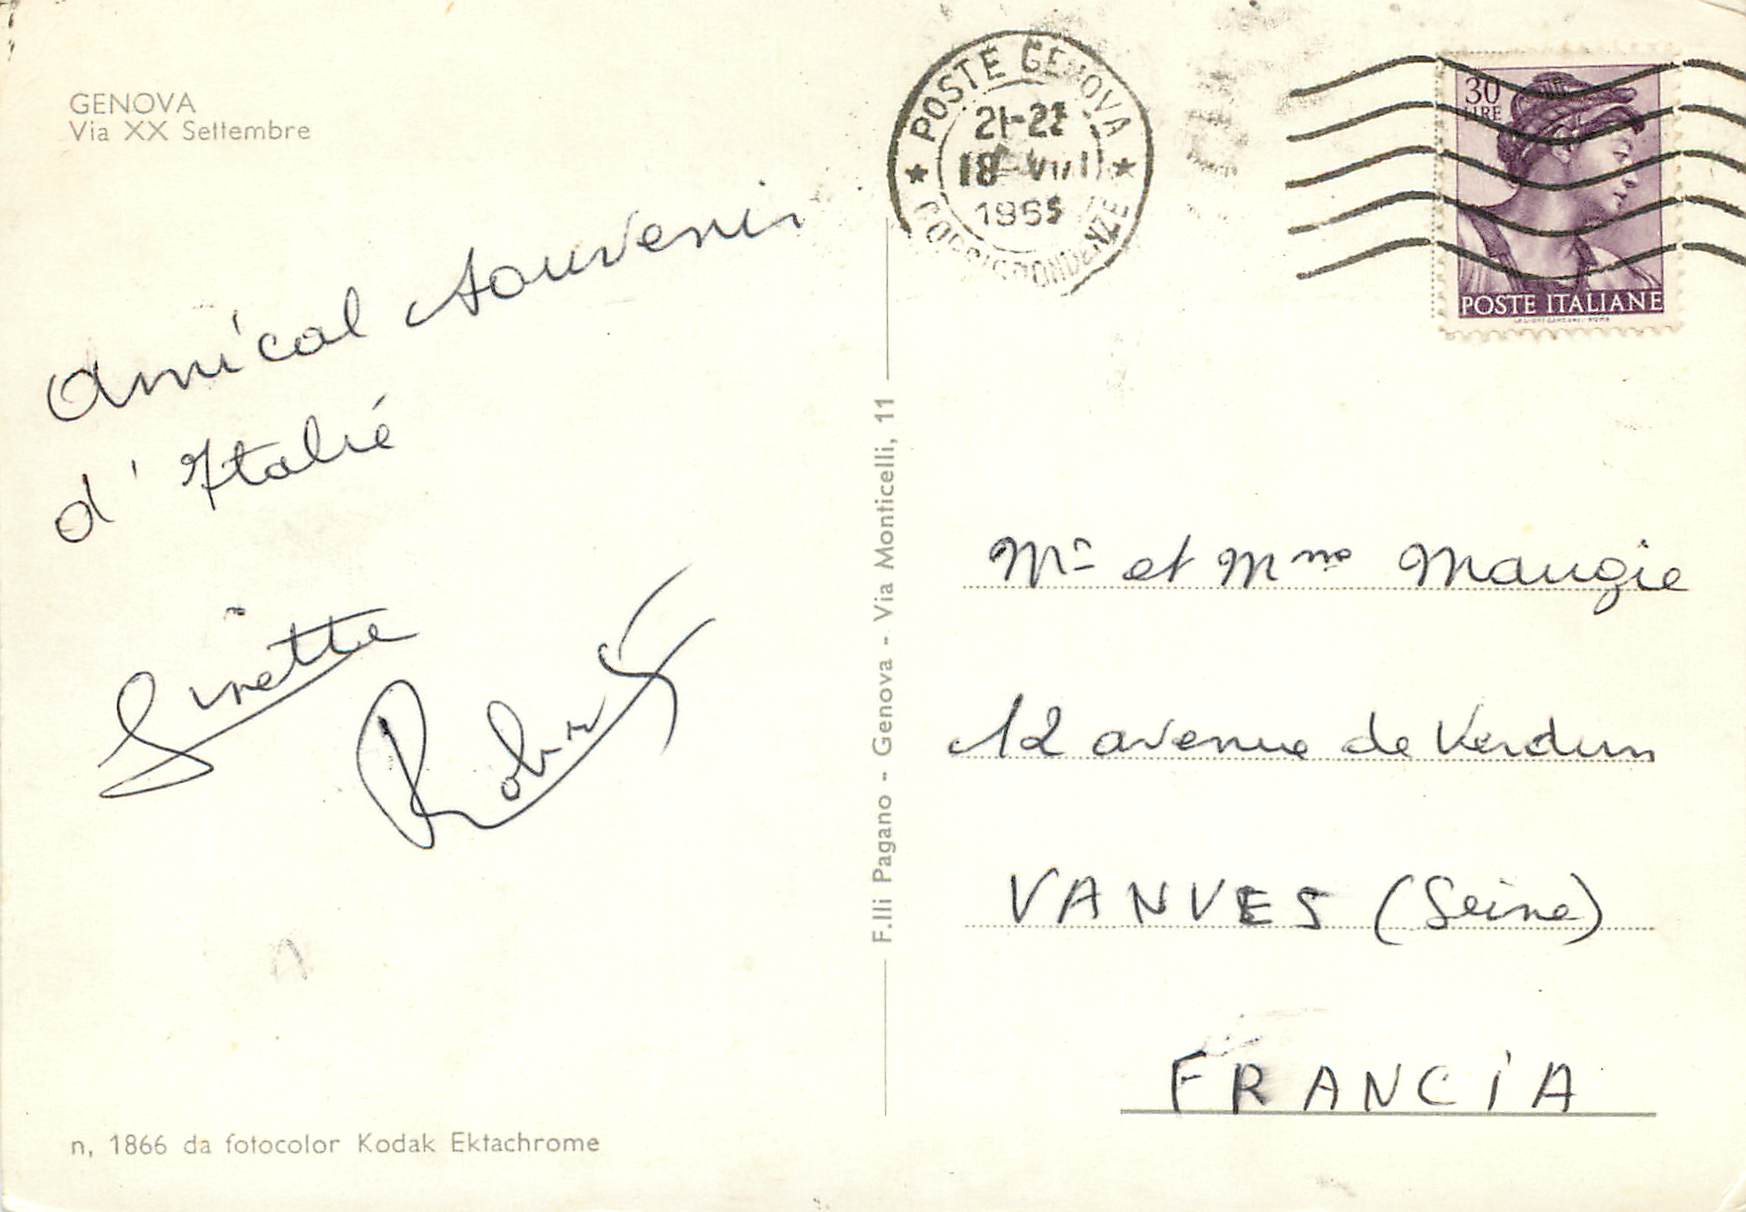 GENOVA
Via XX Settembre
Amical souvenir
d'Italie
Ginette
Robert
n, 1866 da fotocolor Kodak Ektachrome
F.lli Pagano - Genova - Via Monticelli, 11
POSTE GENOVA
21-22
18-VIII
1965
CORRISPONDENZE
30
LIRE
POSTE ITALIANE
Mr et Mme Maugie
12 avenue de Verdun
VANVES (Seine)
FRANCIA